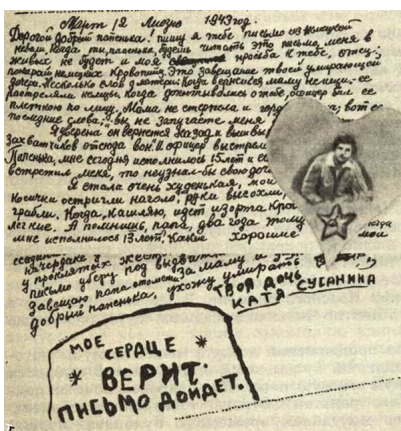 Март 12 Лиозно 1943 год.
Дорогой добрый папенька! пишу я тебе письмо из немецкой
неволи. Когда ты, папенька, будешь читать это письмо, меня в
живых не будет и моя просьба к тебе, отец:
покарай немецких кровопийц. Это завещание твоей умирающей
дочери. Несколько слов о матери: Когда вернешься маму не ищи. Ее
расстреляли немцы. когда допытывались о тебе, офицер бил ее
плеткою по лицу. Мама не стерпела и гордо вот ее
последние слова: „вы не запугаете меня
Я уверена он вернется назад и вышвы
захватчиков отсюда вон. и офицер выстрел
Папенька, мне сегодня исполнилось 15 лет и ес
встретил меня, то не узнал-бы свою доч
Я стала очень худенькая, мои
Косички остригли наголо, руки высохли,
грабли. Когда кашляю, идет изо рта кро
легкие. А помнишь, папа, два года тому когда
мне исполнилось 13 лет. Какие хорошие мои
чердаке
у проклятых
письмо
Завещаю папа отомсти: за маму и
добрый папенька, ухожу умирать
ТВОЯ ДОЧЬ
КАТЯ СУСАНИНА
МОЕ
СЕРДЦЕ
ВЕРИТ.
ПИСЬМО ДОЙДЕТ.